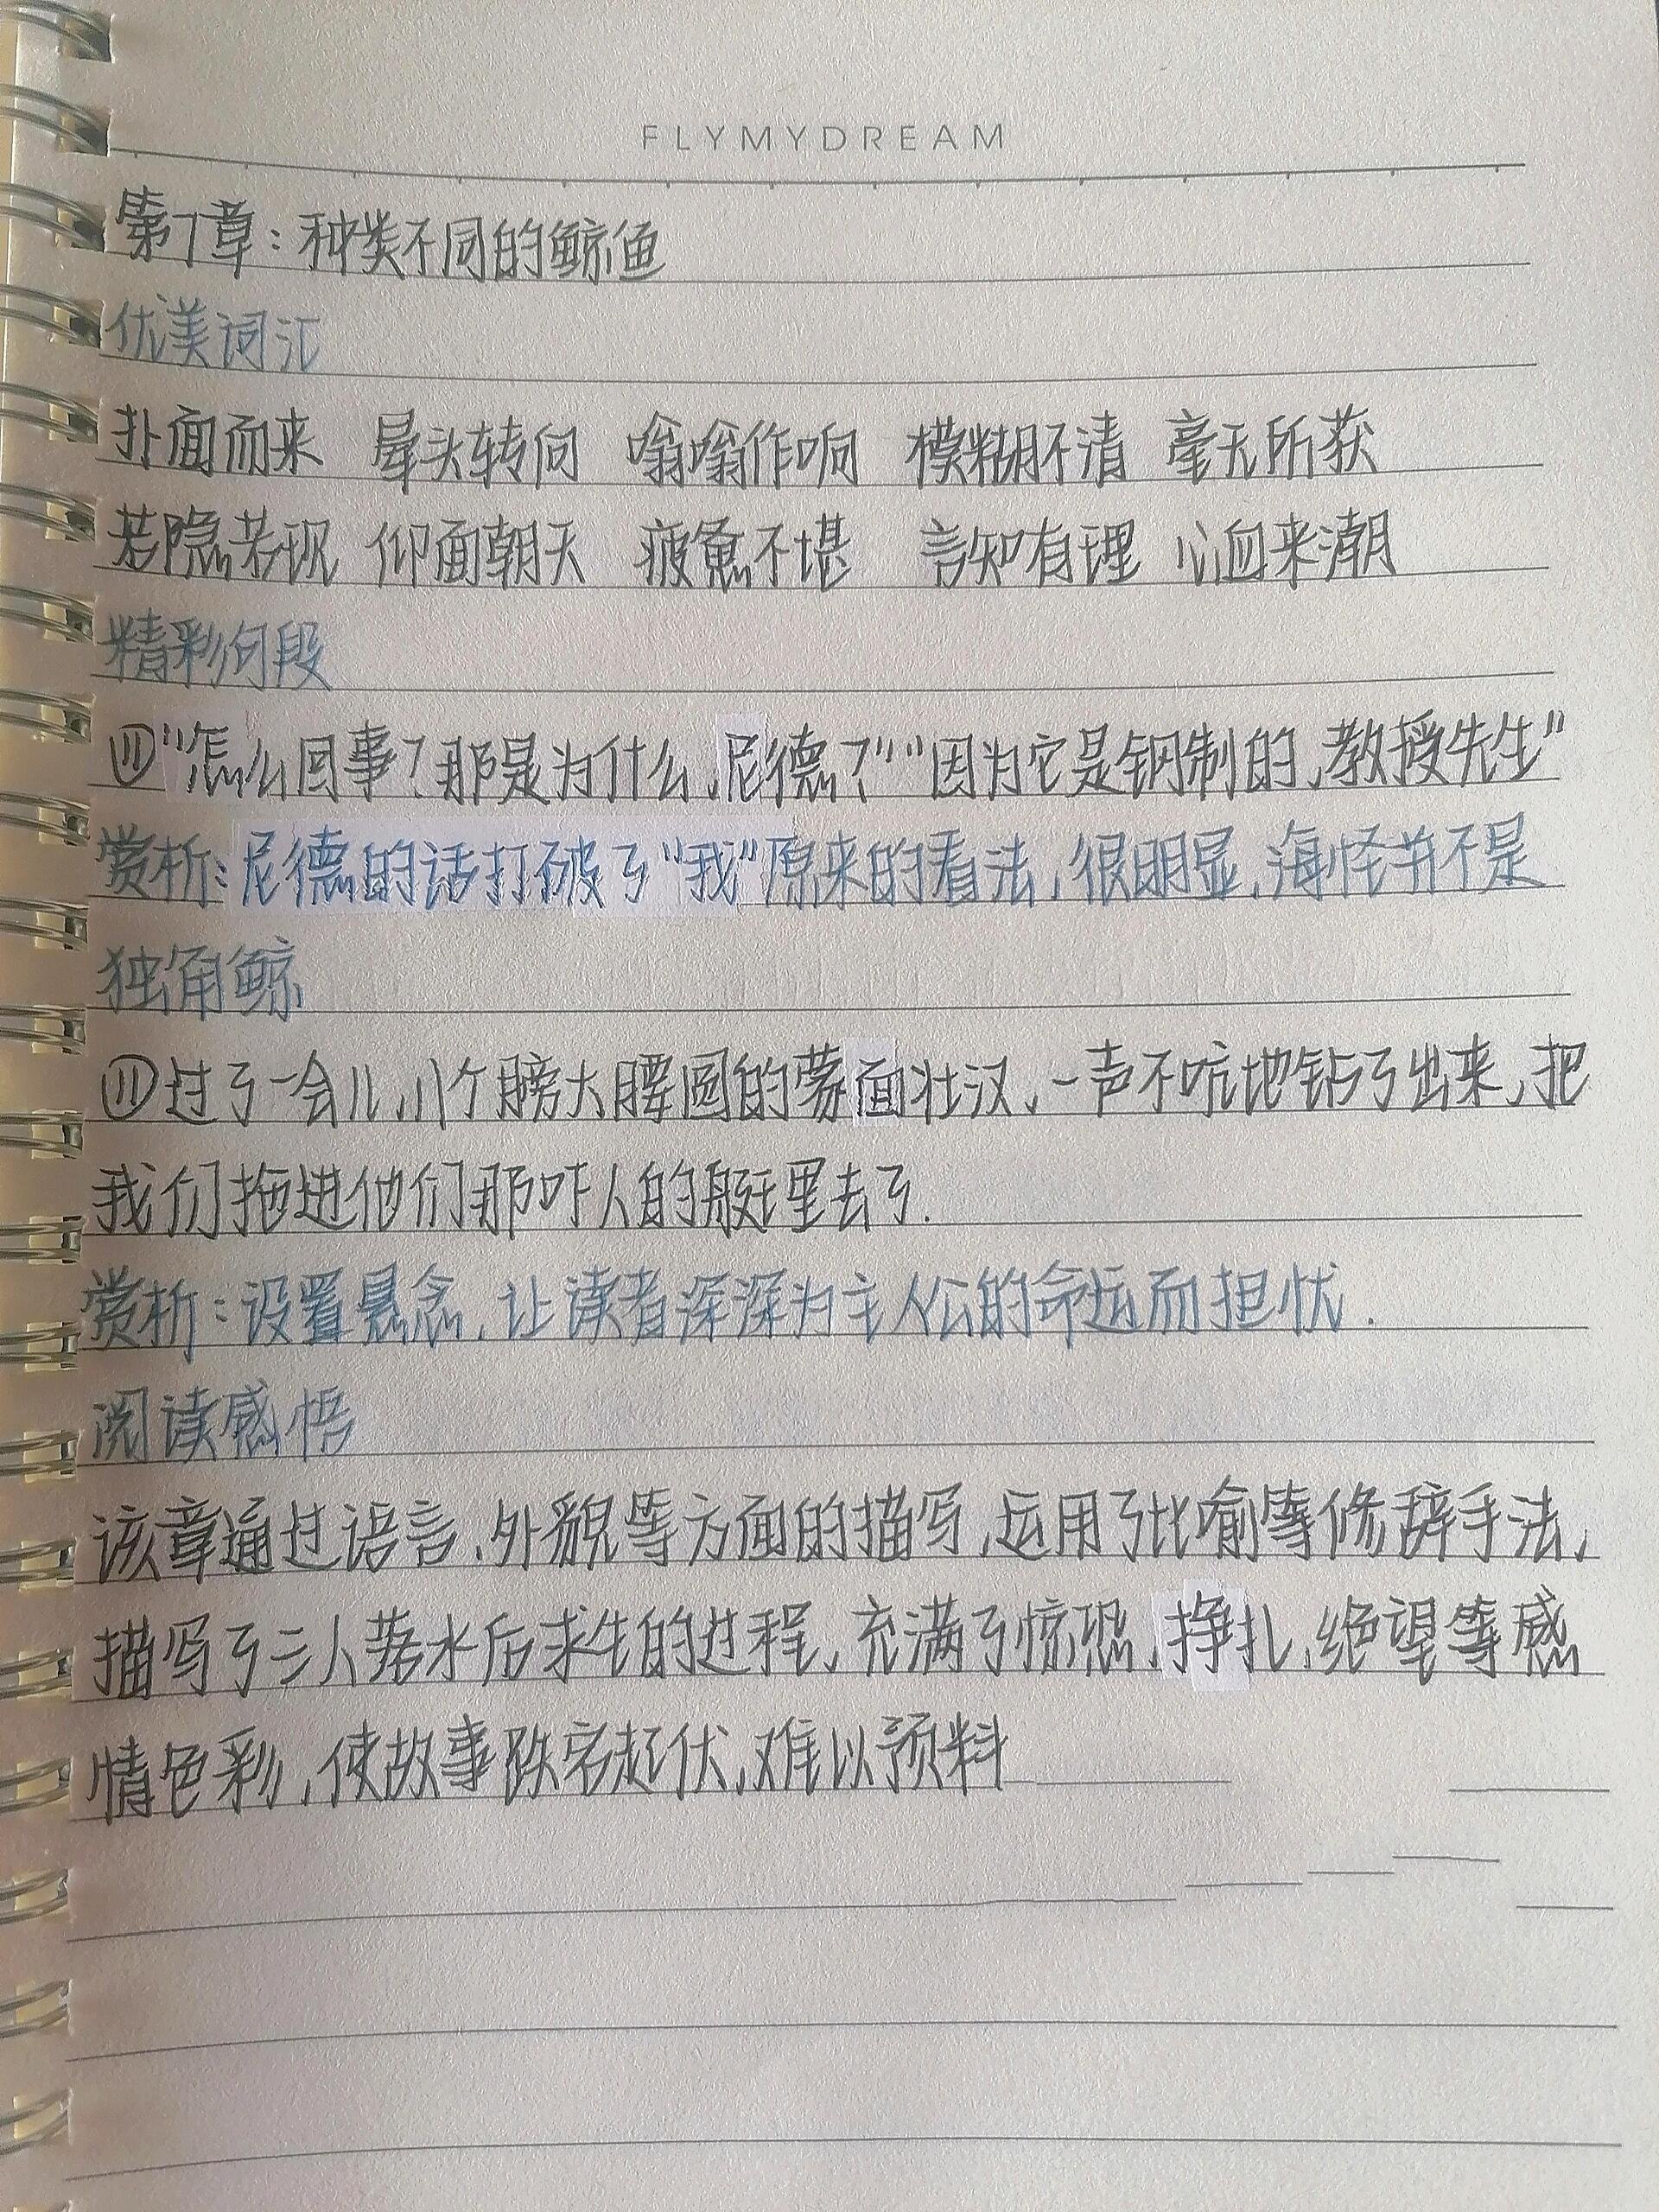 FLYMYDREAM
第7章：种类不同的鲸鱼
优美词汇
扑面而来 晕头转向 嗡嗡作响 模糊不清 毫无所获
若隐若现 仰面朝天 疲惫不堪 言知有理 心血来潮
精彩句段
"怎么回事？那是为什么，尼德？""因为它是钢制的，教授先生"
赏析：尼德的话打破了"我"原来的看法，很明显，海怪并不是
独角鲸
过了一会儿，八个膀大腰圆的蒙面壮汉，一声不吭地钻了出来，把
我们拖进他们那吓人的艇里去了.
赏析：设置悬念，让读者深深为主人公的命运而担忧.
阅读感悟
该章通过语言、外貌等方面的描写，运用了比喻等修辞手法，
描写了三人落水后求生的过程，充满了惊恐、挣扎、绝望等感
情色彩，使故事跌宕起伏，难以预料